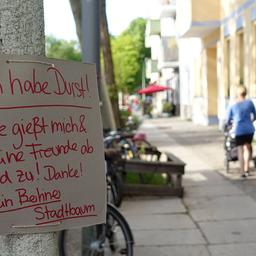 h habe Durst!
e gießt mich &
ine Freunde ab
d zu! Danke!
in Behner
Stadtbaum